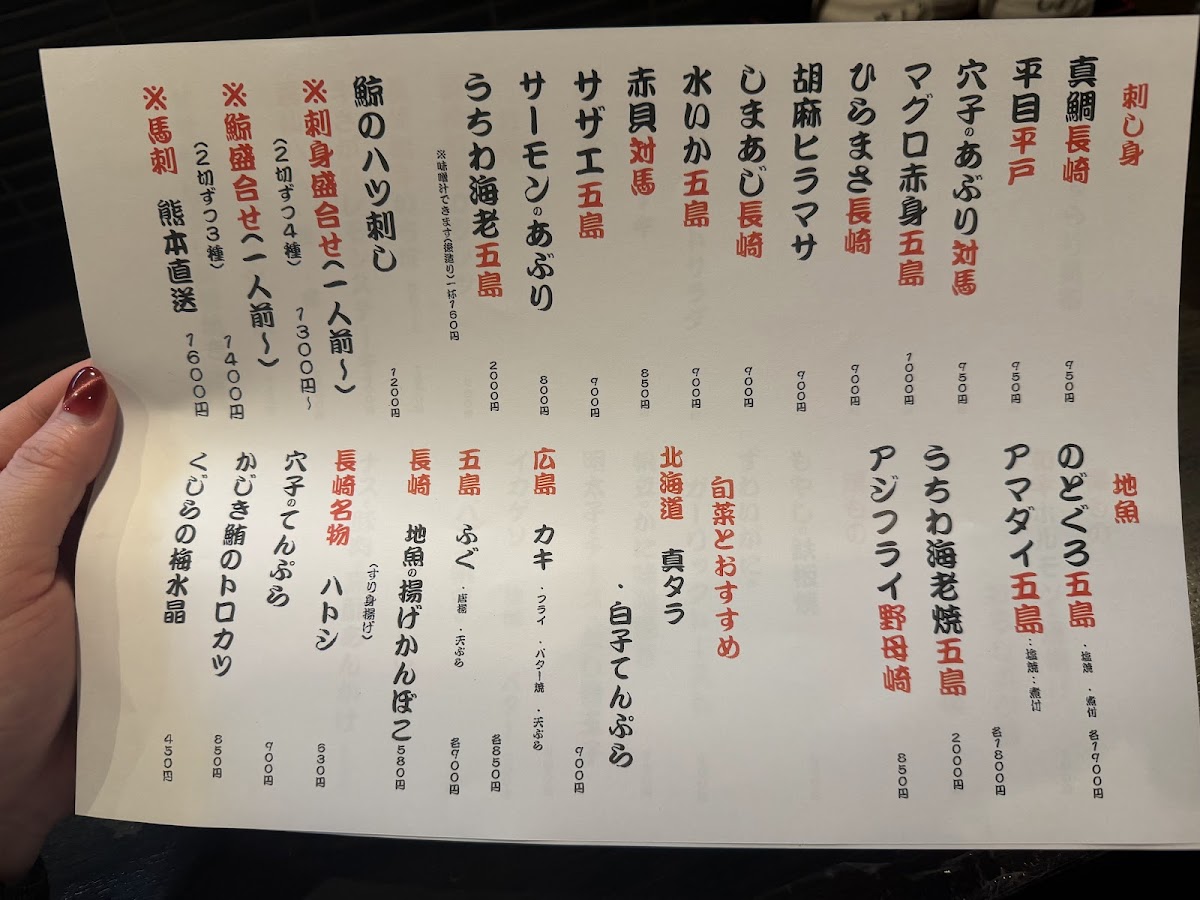 刺し身
真鯛長崎 950円
平目平戸 950円
穴子のあぶり対馬 950円
マグロ赤身五島 1000円
ひらまさ長崎 900円
胡麻ヒラマサ 900円
しまあじ長崎 900円
水いか五島 900円
赤貝対馬 850円
サザエ五島 900円
サーモンのあぶり 800円
うちわ海老五島 2000円
※味噌汁できます(後造り)一杯160円
鯨のハツ刺し 1200円
※刺身盛合せ(一人前~)
(2切ずつ4種) 1300円~
※鯨盛合せ(一人前~)
(2切ずつ3種) 1400円
※馬刺 熊本直送 1600円
地魚
のどぐろ五島 ・塩焼 ・煮付 各1900円
アマダイ五島 ・塩焼 ・煮付 各1800円
うちわ海老焼五島 2000円
アジフライ野母崎 850円
旬菜とおすすめ
北海道 真タラ
・白子てんぷら 900円
広島 カキ ・フライ ・バター焼 ・天ぷら 各850円
五島 ふぐ ・唐揚 ・天ぷら 各900円
長崎 地魚の揚げかんぼこ 580円
(すり身揚げ)
長崎名物 ハトシ 630円
穴子のてんぷら 900円
かじき鮪のトロカツ 850円
くじらの梅水晶 450円